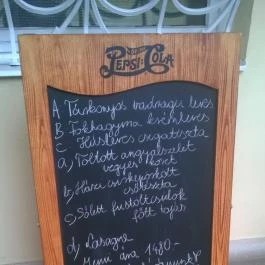 PEPSI-COLA
A Tárkonyos vadragu leves
B Fokhagyma krémleves
C Húsleves csigatészta
a, Töltött angyalbatyu
vegyes köret
b, Házi csirkepörkölt
c, Sólet füstölt
főtt tojás
d, Lasagne
Menü ára 1480.-